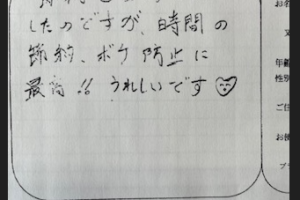 したのですが、時間の
節約、ボケ防止に
最高!! うれしいです♡
お名
又
年齢
性別
ご住
お